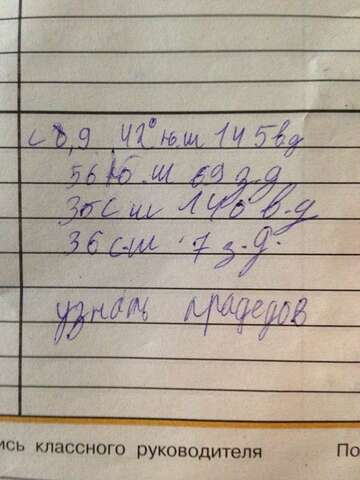 с 8,9 42° ю.ш 145 в д
56 ю.ш 69 з.д
36 с ш 140 в.д
36 с.ш 7 з.д.
узнать прадедов
ись классного руководителя По